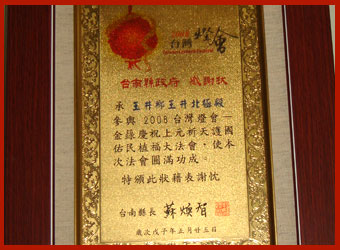 2008
台灣燈會
台南縣政府 感謝狀
承 玉井鄉玉井北極殿
參與2008台灣燈會—
金錄慶祝上元祈天護國
佑民植福大法會,使本
次法會圓滿功成。
特頒此狀藉表謝忱
台南縣長 蘇煥智
歲次戊子年三月廿三日